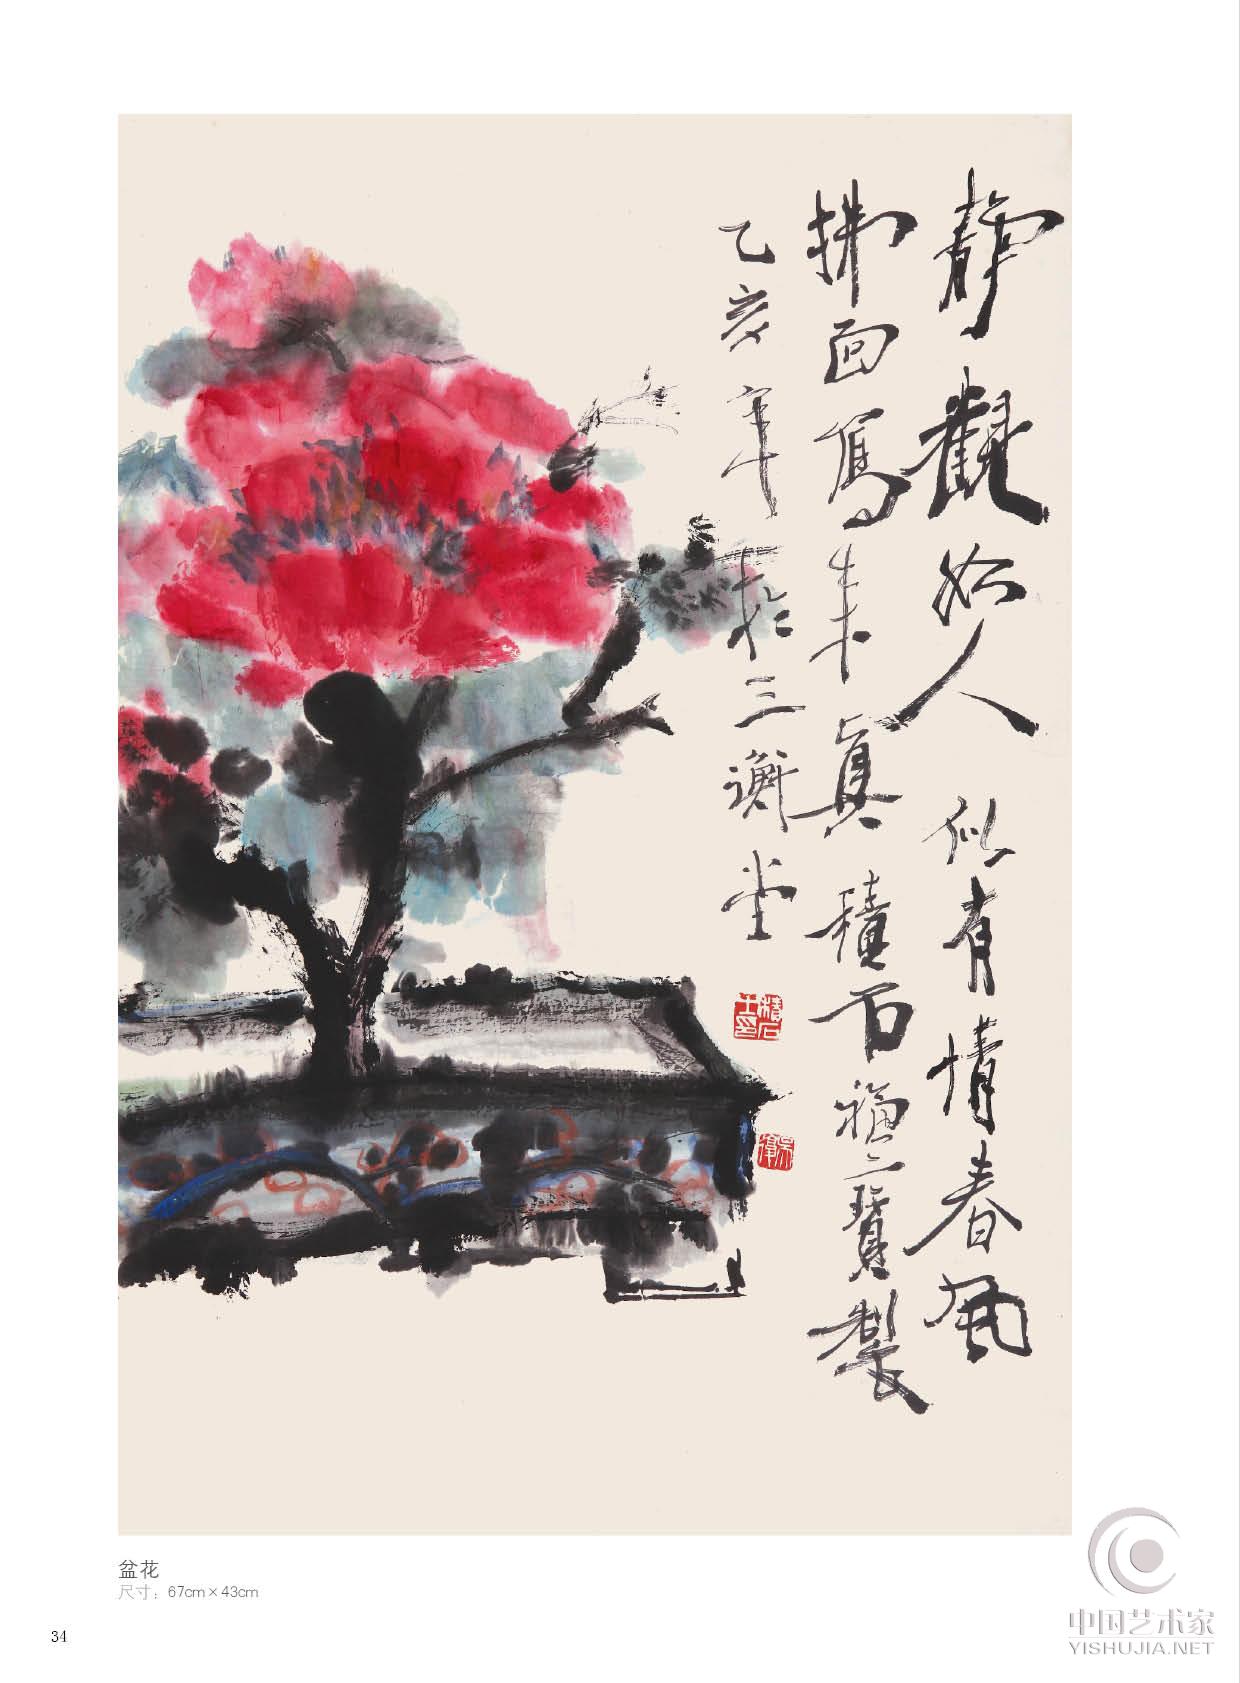 靜觀如人似有情春風
拂面寫来真積石福三寶製
乙亥年於三衡堂
盆花
尺寸：67cm×43cm
34
中国艺术家
YISHUJIA.NET